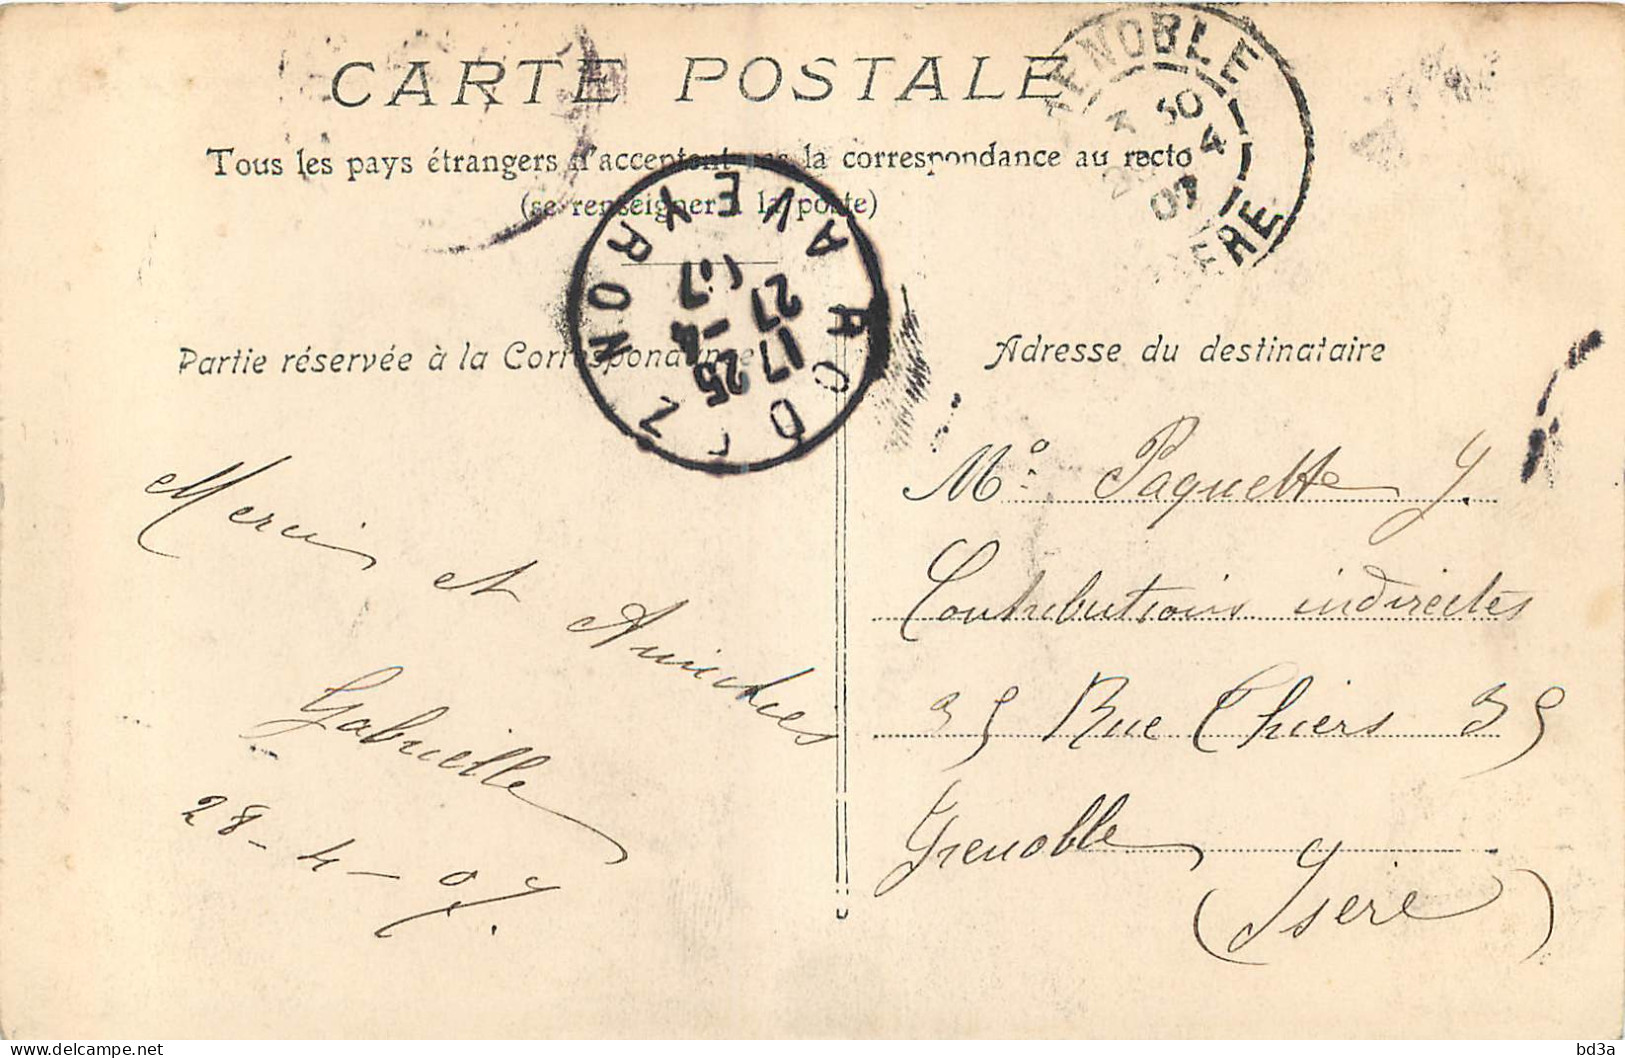 CARTE POSTALE
Tous les pays étrangers n'acceptent pas la correspondance au recto
(se renseigner à la poste)
GRENOBLE
ISERE
3 50
4
07
RODEZ
AVEYRON
17 25
27 -4
07
Partie réservée à la Correspondance
Adresse du destinataire
Merci et Amitiés
Gabrielle
28 - 4 - 07.
Mo. Paquette J.
Contributions indirectes
35 Rue Thiers 35
Grenoble
(Isère)
bd3a